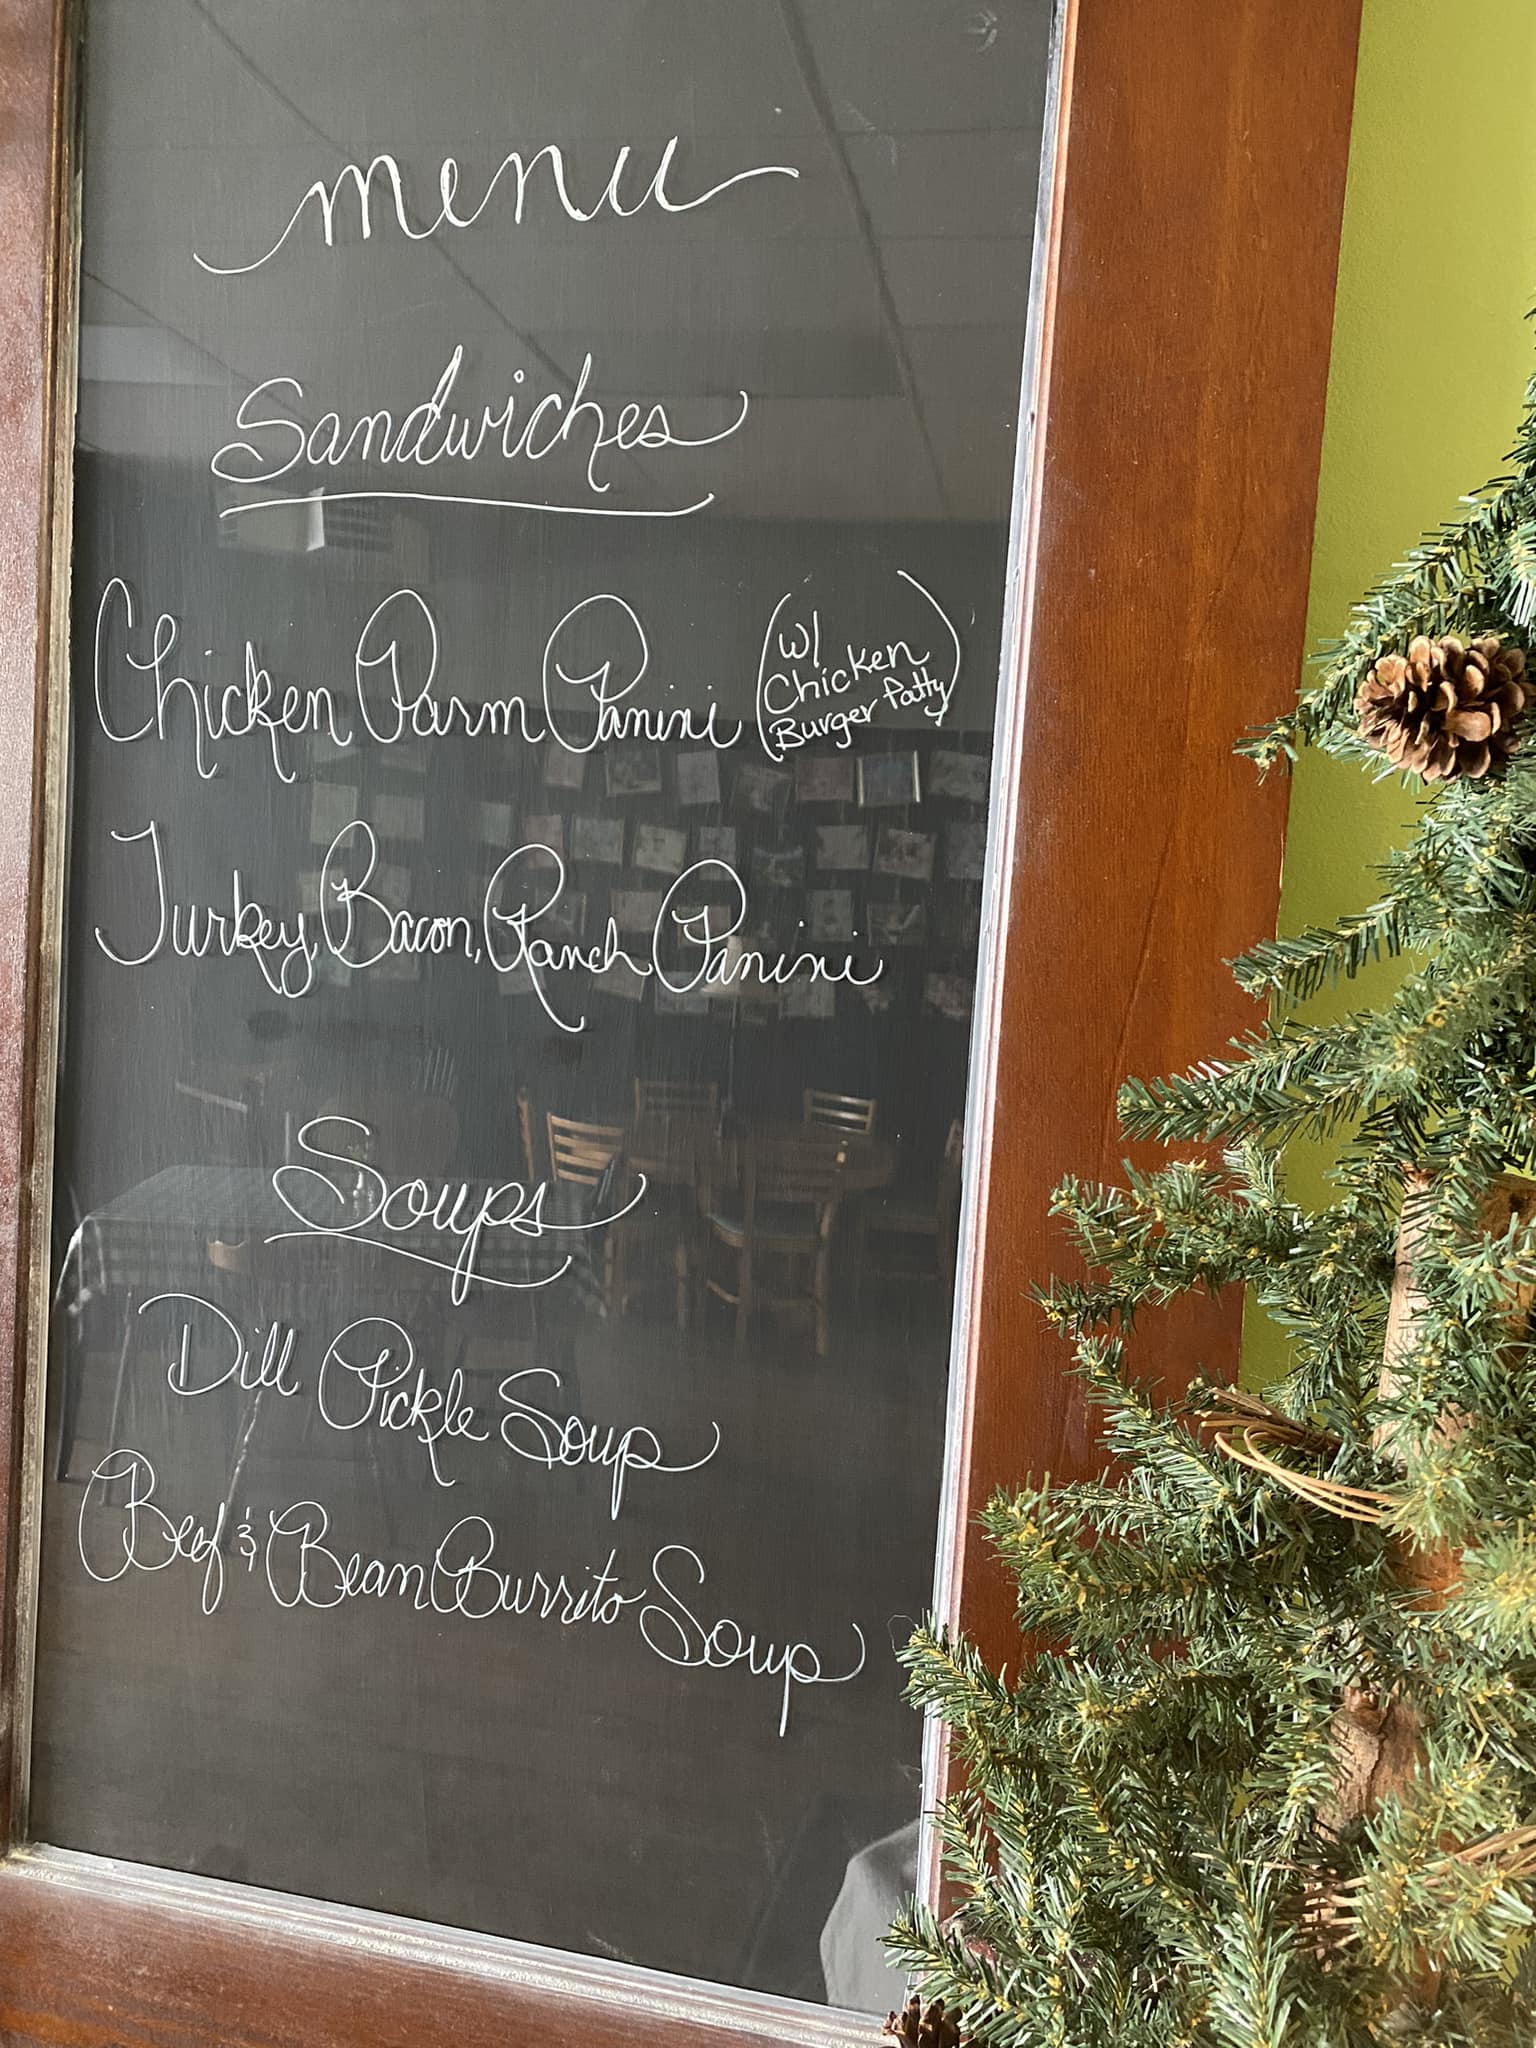 menu
Sandwiches
Chicken Parm Panini (w/
Chicken
Burger Patty)
Turkey, Bacon, Ranch Panini
Soups
Dill Pickle Soup
Beef & Bean Burrito Soup